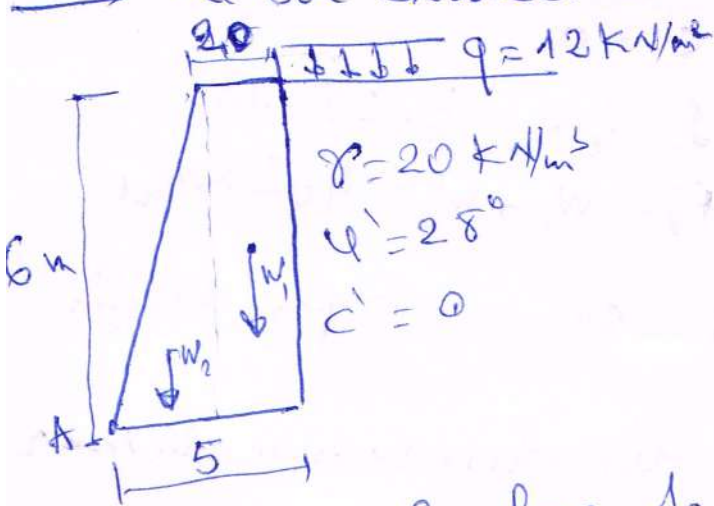 2,0
q = 12 KN/m²
γ = 20 KN/m³
6 m
φ' = 28°
c' = 0
W₁
W₂
A
5